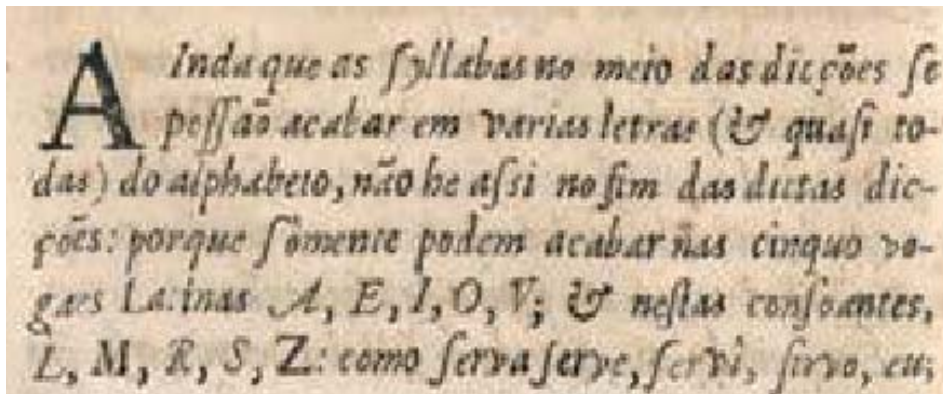 AInda que as ſyllabas no meio das dicções ſe
poſſaõ acabar em varias letras (& quaſi to-
das) do alphabeto, não he aſsi no fim das dictas dic-
ções: porque ſòmente podem acabar nas cinquo vo-
gaes Latinas A, E, I, O, V; & neſtas conſoantes,
L, M, R, S, Z: como ſerva ſerve, ſervi, ſirvo, eu;